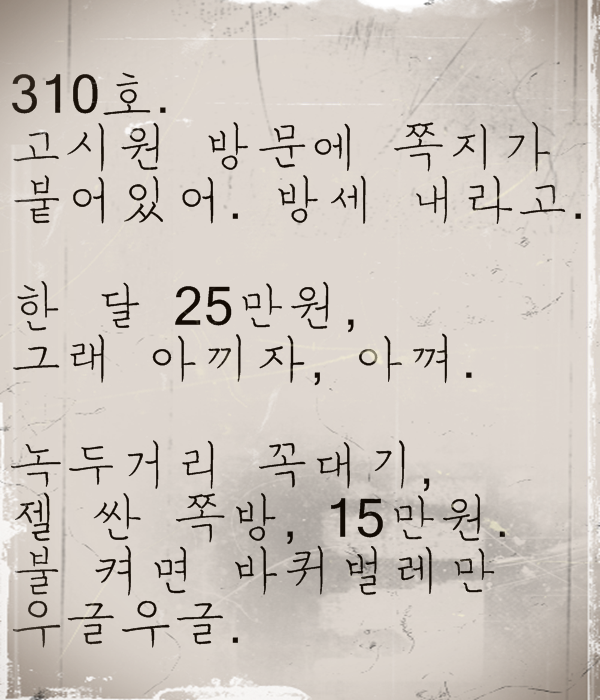 310호.
고시원 방문에 쪽지가
붙어있어. 방세 내라고.
한 달 25만원,
그래 아끼자, 아껴.
녹두거리 꼭대기,
젤 싼 쪽방, 15만원.
불 켜면 바퀴벌레만
우글우글.